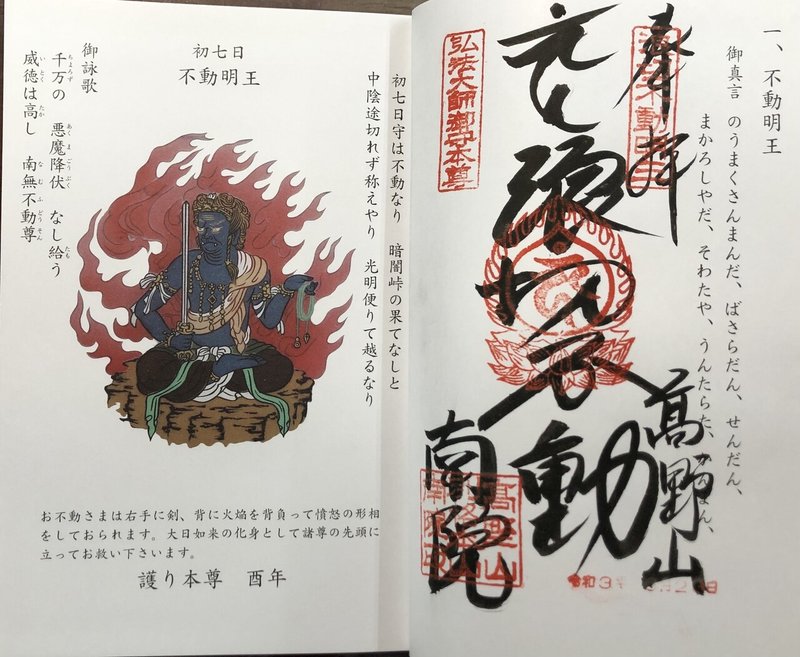 一、不動明王
御真言 のうまくさんまんだ、ばさらだん、せんだん、
まかろしやだ、そわたや、うんたらた、
奉拝
髙野山
浪切不動
弘法大師御守本尊
南院
高野山
令和3年
初七日守は不動なり 暗闇峠の果てなしと
中陰途切れず称えやり 光明便りて越るなり
初七日
不動明王
御詠歌
千万の 悪魔降伏 なし給う
威徳は高し 南無不動尊
お不動さまは右手に剣、背に火焔を背負って憤怒の形相
をしておられます。大日如来の化身として諸尊の先頭に
立ってお救い下さいます。
護り本尊 酉年